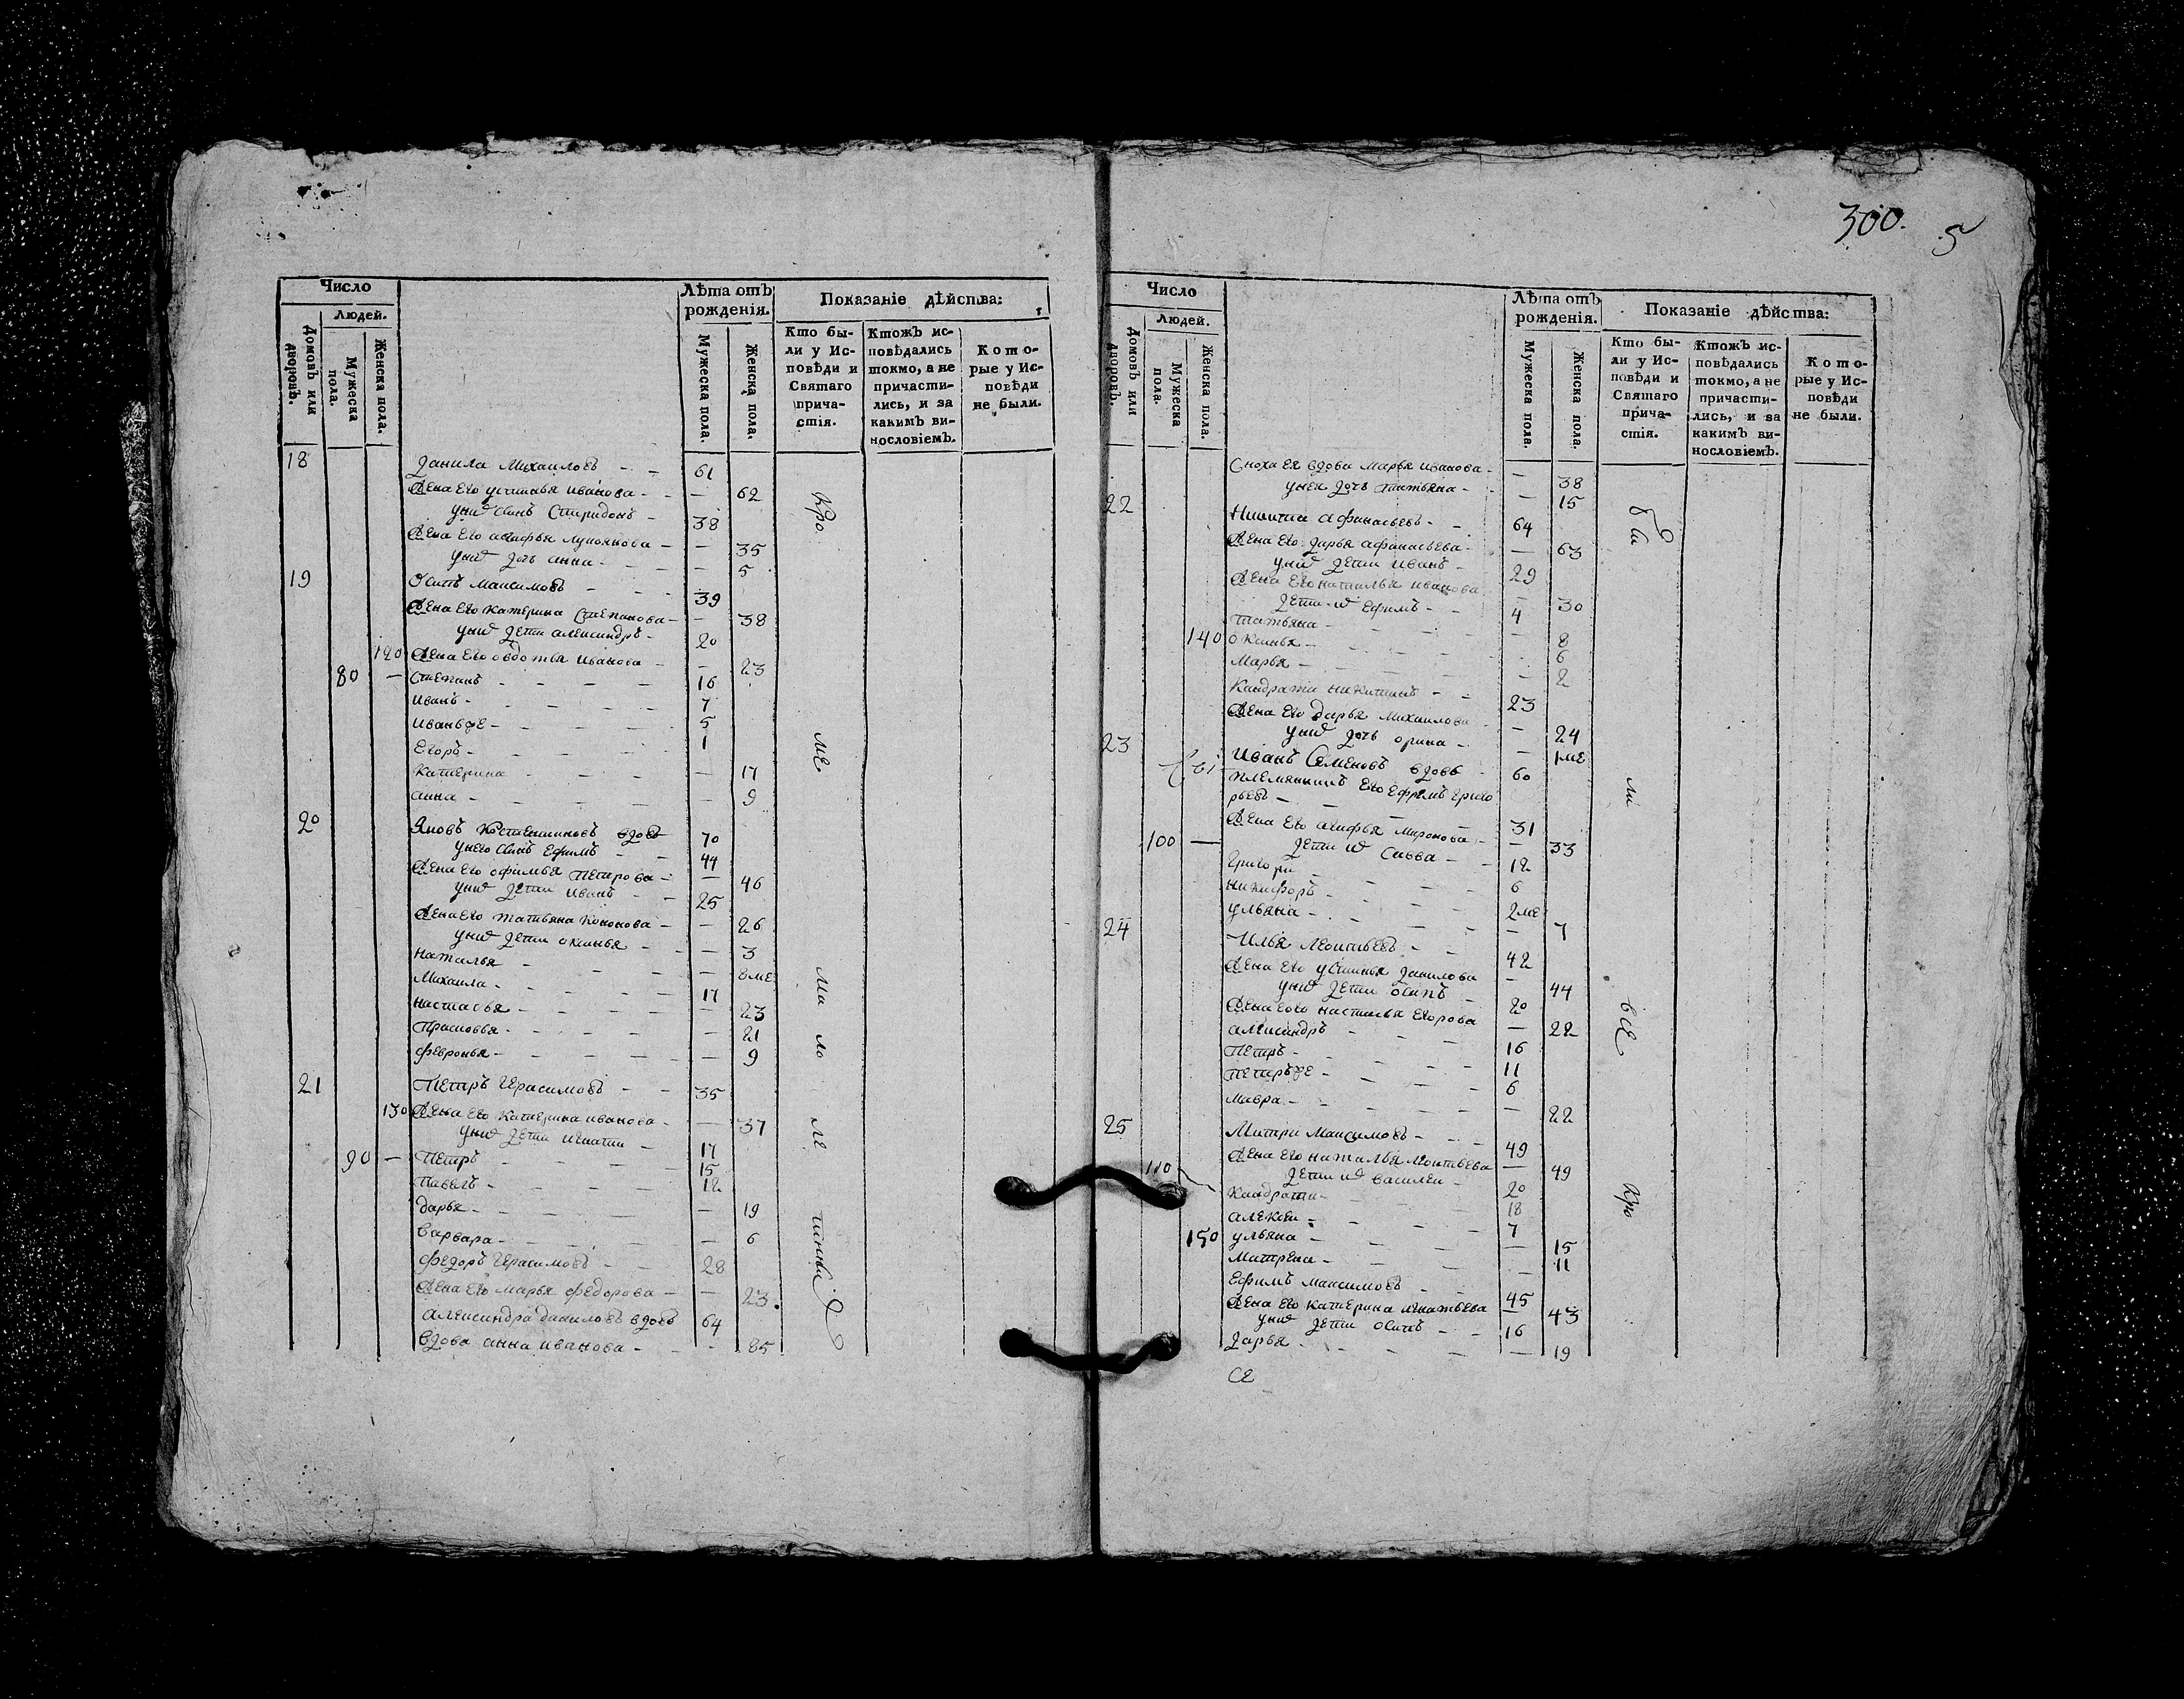 300. 5
Число
Людей.
Домовъ или дворовъ.
Мужеска пола.
Женска пола.
Лѣта отъ рожденія.
Мужеска пола.
Женска пола.
Показаніе дѣйства:
Кто бы-
ли у Ис-
повѣди и
Святаго
прича-
стія.
Ктожъ ис-
повѣдались
токмо, а не
причасти-
лись, и за
какимъ ви-
нословіемъ.
Кото-
рые у Ис-
повѣди
не были.
18 Данила Михаиловъ 61
Жена его устинья иванова 62
у них сынъ Спиридонъ 38
Жена его агафья лукоянова 35
у них дочь анна 5
19 Осипъ максимовъ 39
Жена его катерина Степанова 38
у них дети александръ 20
120 Жена его овдотья иванова 23
80 — Степанъ 16
иванъ 7
иванъ же 5
Егоръ 1
катерина 17
анна 9
20 Яковъ костентиновъ вдовъ 70
у него сынъ Ефимъ 44
Жена его офимья петрова 46
у них дети иванъ 25
Жена его татьяна кононова 26
у них дети оксинья 3
наталья 8 ме
михаила 17
настасья 23
Прасковья 21
февронья 9
21 Петръ Герасимовъ 35
130 Жена его катерина иванова 37
у них дети игнати 17
90 — Петръ 15
павелъ 12
дарья 19
варвара 6
федоръ Герасимовъ 28
Жена его марья федорова 23
александра даниловъ вдовъ 64
вдова анна иванова 85
Кро
ме
ма
ло
ле
тних
Число
Людей.
Домовъ или дворовъ.
Мужеска пола.
Женска пола.
Лѣта отъ рожденія.
Мужеска пола.
Женска пола.
Показаніе дѣйства:
Кто бы-
ли у Ис-
повѣди и
Святаго
прича-
стія.
Ктожъ ис-
повѣдались
токмо, а не
причасти-
лись, и за
какимъ ви-
нословіемъ.
Кото-
рые у Ис-
повѣди
не были.
Сноха ея вдова марья иванова 38
у нея дочь татьяна 15
22 Никита афанасьевъ 64
Жена его дарья афанасьева 63
у них дети иванъ 29
Жена его наталья иванова 30
дети их Ефимъ 4
татьяна 8
140 оксинья 6
марья 2
Кандрати никитинъ 23
Жена его дарья михаилова 24
у них дочь орина 1 ме
23 иванъ Семеновъ вдовъ 60
племянникъ его Ефремъ григо
рьевъ 31
Жена его агафья миронова 33
100 — дети их Савва 12
Григори 6
никифоръ 2 ме
ульяна 7
24 Илья леонтьевъ 42
Жена его устинья данилова 44
у них дети осипъ 20
Жена его настасья Егорова 22
александръ 16
Петръ 11
петръ же 6
мавра 22
25 Митри Максимовъ 49
Жена его наталья леонтьева 49
дети их василеи 20
110 Кандрати 18
алексеи 7
150 ульяна 15
матрена 11
Ефимъ максимовъ 45
Жена его катерина игнатьева 43
у них дети осипъ 16
дарья 19
бы
ли
все
Кро